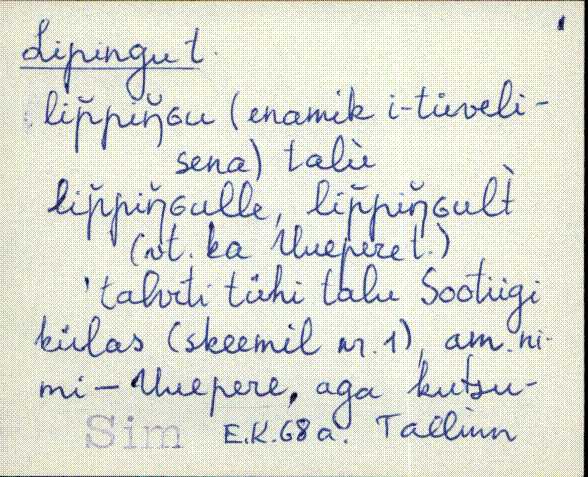 Lipingu t.
lip̆piŋ̆ɢu (enamik i-tüveli-
sena) talù
lip̆piŋ̆ɢulle, lip̆piŋ̆ɢult̀
(vt. ka Uuepere t.)
'talviti tühi talu Sootiigi
külas (skeemil nr. 1), am. ni-
mi – Uuepere, aga kutsu-
Sim E.K. 68 a. Tallinn